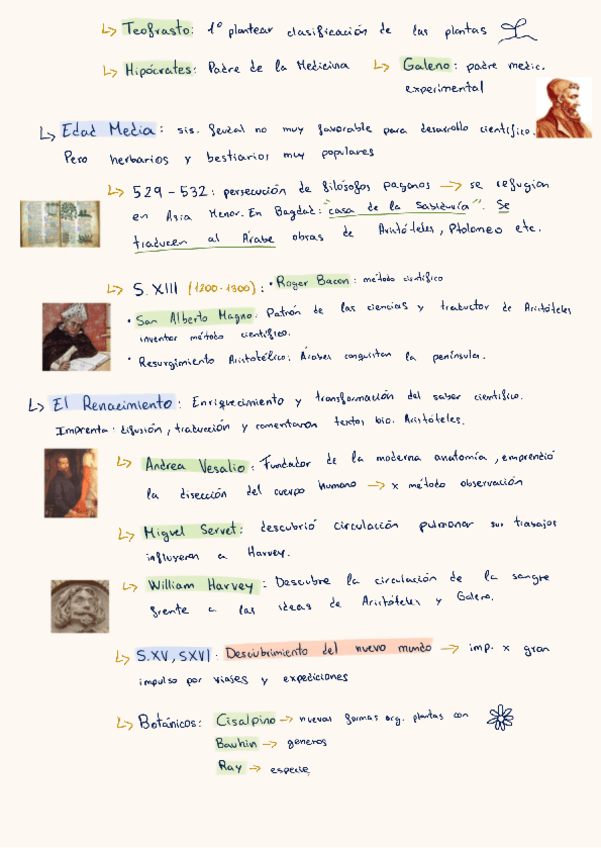 ↳ Teofrasto: 1º plantear clasificación de las plantas
↳ Hipócrates: Padre de la Medicina ↳ Galeno: padre medic.
experimental
↳ Edad Media: sis. feudal no muy favorable para desarrollo científico.
Pero herbarios y bestiarios muy populares
↳ 529-532: persecución de filósofos paganos → se refugian
en Asia Menor. En Bagdad: "casa de la Sabiduría". Se
traducen al Árabe obras de Aristóteles, Ptolomeo etc.
↳ S. XIII (1200-1300): • Roger Bacon: método científico
• San Alberto Magno. Patrón de las ciencias y traductor de Aristóteles
inventor método científico.
• Resurgimiento Aristotélico: Árabes conquistan la península.
↳ El Renacimiento: Enriquecimiento y transformación del saber científico.
Imprenta: difusión, traducción y comentaron textos bio. Aristóteles.
↳ Andrea Vesalio: Fundador de la moderna anatomía, emprendió
la disección del cuerpo humano → x método observación
↳ Miguel Servet: descubrió circulación pulmonar sus trabajos
influyeron a Harvey.
↳ William Harvey: Descubre la circulación de la sangre
frente a las ideas de Aristóteles y Galeno.
↳ S.XV, SXVI: Descubrimiento del nuevo mundo → imp. x gran
impulso por viajes y expediciones
↳ Botánicos: Cisalpino → nuevas formas org. plantas con
Bauhin → generos
Ray → especie